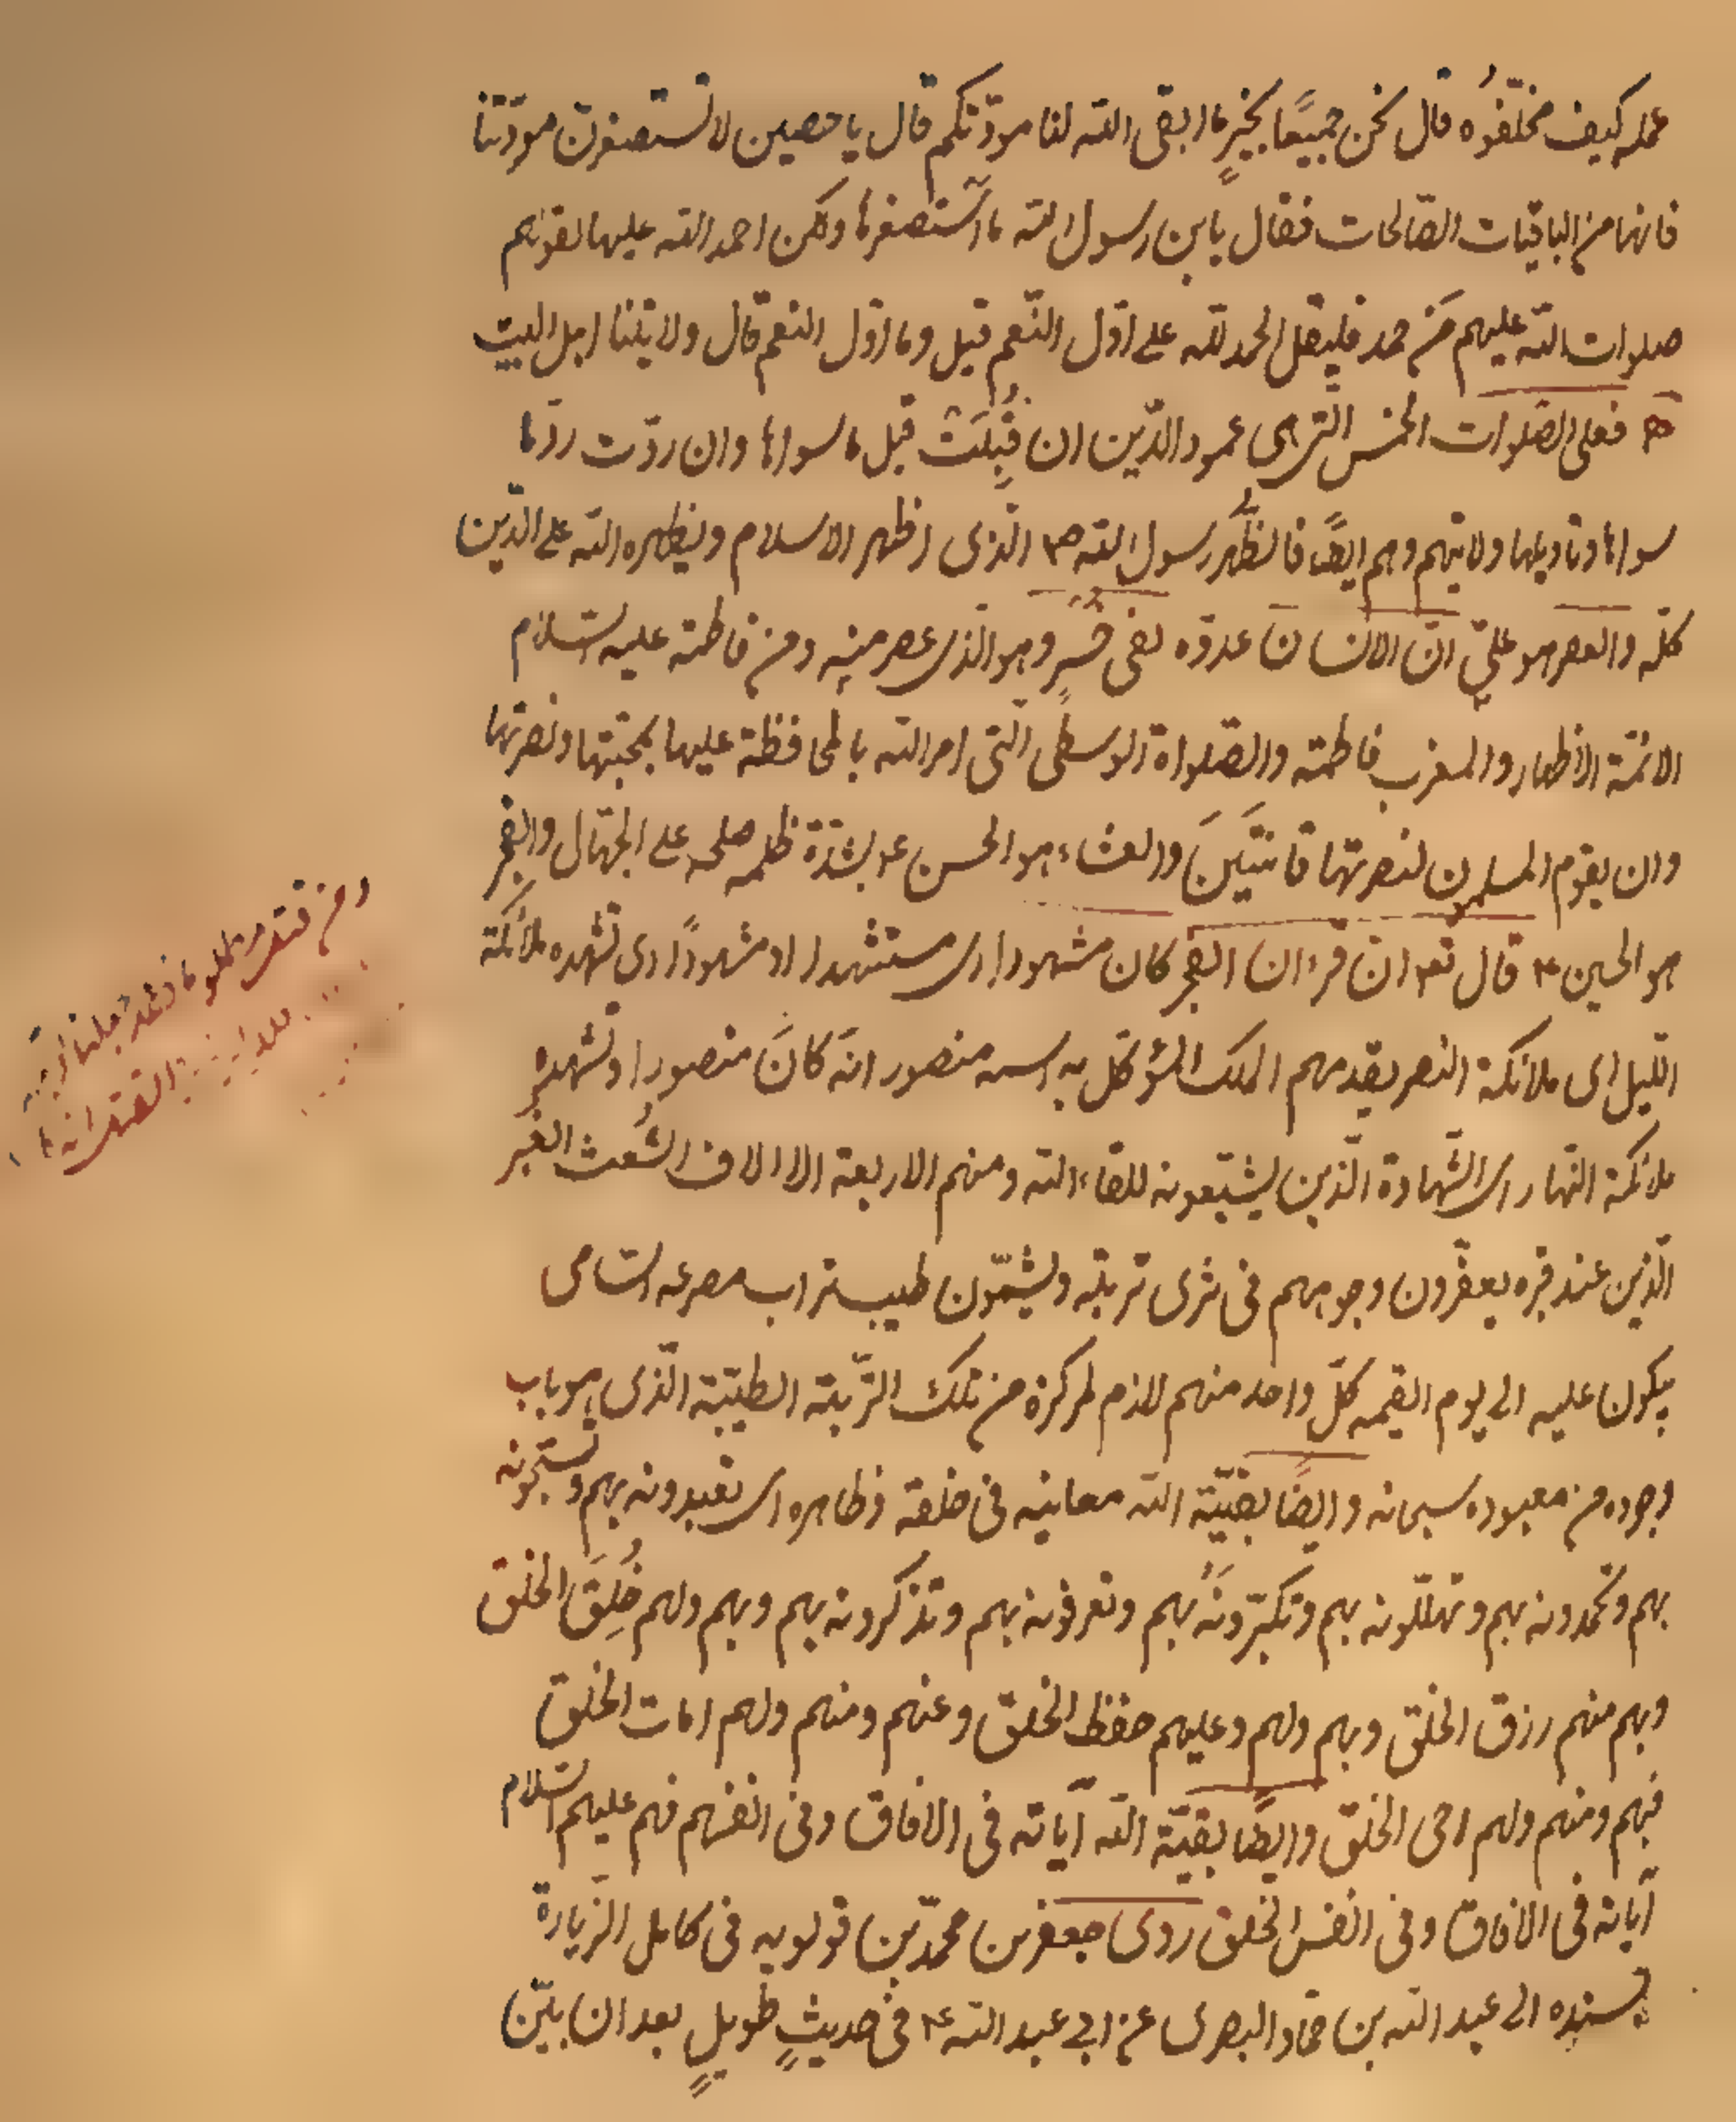 عمله كيف مخلّفوُه قال نحن جميعًا بخيرٍ ما ابقى الله لنا مودّتكم قال يا حصين لا تستصغرنّ مودّتنا
فانها من الباقيات الصّالحات فقال يا بن رسول الله ما استصغرها ولكن احمد الله عليها لقولهم
صلوات الله عليهم مَن حمد فليقل الحمد لله على اوّل النّعم قيل وما اوّل النعم قال ولايتنا اهل البيت
فعلى الصّلوات الخمس الّتى هى عمود الدّين ان قُبِلَتْ قبل ما سواها وان ردّت ردّ ما
سواها وتاويلها ولايتهم وهم ايضًا فالظّهر رسول الله ص الّذى اظهر الاسلام وليظهره الله على الدّين
كلّه والعصر هو علىّ انّ الانسان عدوّه لفى خُسْرٍ وهو الّذى عصر منيه ومن فاطمة عليه السّلام
الائمّة الاطهار والمغرب فاطمة والصّلواة الوسطى الّتى امر الله بالمحافظة عليها بمحبّتها ونصرتها
وان يقوم المسلمون لنصرتها قانتينَ والعشاء هو الحسن ع لشدّة ظلمه صلحه على الجهّال والفجر
هو الحسين ع قال تع انّ قرءان الفجر كان مشهودا اى مستشهدا او مشهودًا اى تشهده ملائكة
اللّيل اى ملائكة النصر يقدمهم الملك المؤكّل به اسمه منصور انّه كانَ منصورا وتشهده
ملائكة النّهار اى الشّهادة الّذين يشيّعونه للقاء الله ومنهم الاربعة الاالاف الشُعث الغبر
الّذين عند قبره يعفّرون وجوههم فى ثرى تربته ويشمّون طيب تراب مصرعه السّامى
يبكون عليه الى يوم القيمه كلّ واحد منهم لازم لمركزه من تلك التّربة الطيّبة الّذى هو باب
وجوده من معبوده سبحانه وايضًا بقيّة الله معانيه فى خلقه وظاهره اى تعبدونه بهم وتسبّحونه
بهم وتحمدونه بهم وتهلّلونه بهم وتكبّرونَهُ بهم وتعرفونه بهم وتذكرونه بهم وبهم ولهم خُلِقَ الخلق
وبهم منهم رزق الخلق وبهم ولهم وعليهم حفظ الخلق وعنهم ومنهم ولهم امات الخلق
فبهم ومنهم ولهم احى الخلق وايضًا بقيّة الله آياته فى الافاق وفى انفسهم فهم عليهم السّلام
آياته فى الافاق وفى انفس الخلق روى جعفر بن محمّد بن قولويه فى كامل الزّيارة
بسنده الى عبد الله بن حمّاد البصرى عن ابى عبد الله ع فى حديثٍ طويلٍ بعد ان بيّن
ومن قتل مظلوما فقد جعلنا